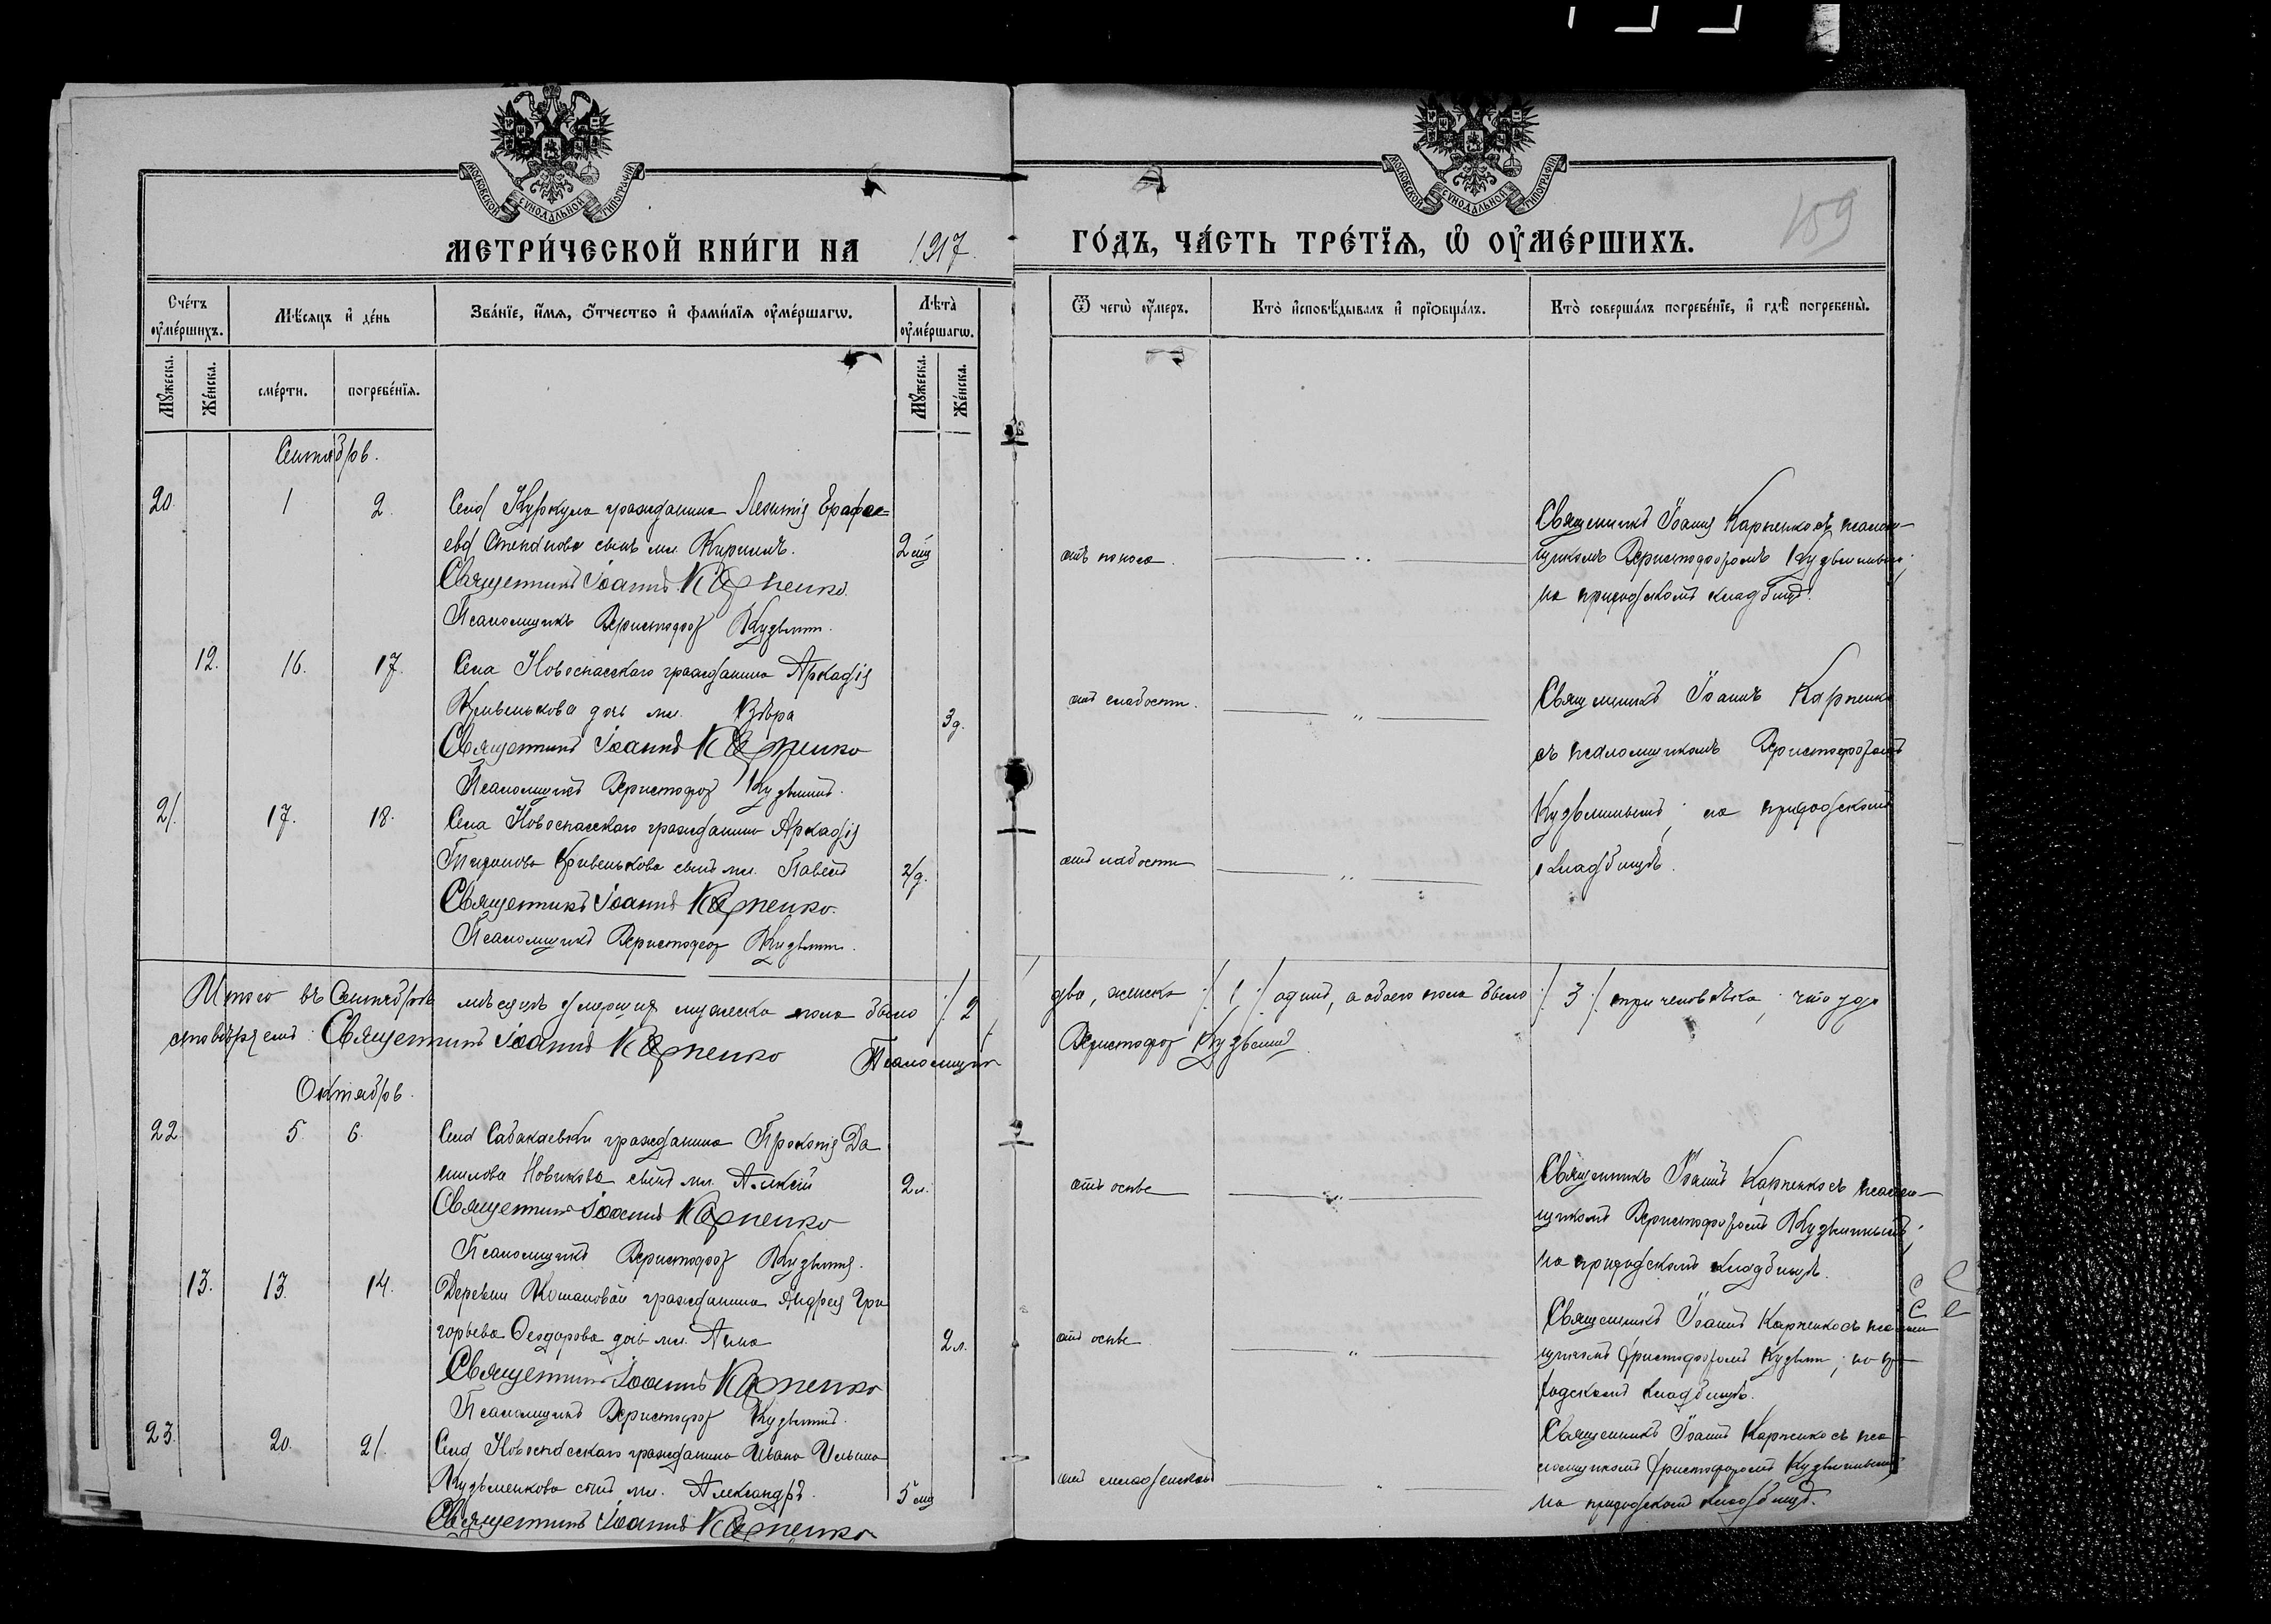 МОСКОВСКОЙ СѴНОДАЛЬНОЙ ТИПОГРАФІИ
МОСКОВСКОЙ СѴНОДАЛЬНОЙ ТИПОГРАФІИ
159
МЕТРИ́ЧЕСКОЙ КНИ́ГИ НА 1917
ГО́ДЪ, ЧА́СТЬ ТРЕ́ТЇѦ, Ѡ҆ ОУ҆МЕ́РШИХЪ.
Сче́тъ оу҆ме́ршихъ.
Мѣ́сяцъ и҆ де́нь
Зва́нїе, и҆́мѧ, ѻ҆́тчество и҆ фами́лїѧ оу҆ме́ршагѡ.
Лѣ́та оу҆ме́ршагѡ.
Ѿ чегѡ̀ оу҆́меръ.
Кто̀ и҆сповѣ́дывалъ и҆ прїѡбща́лъ.
Кто̀ соверша́лъ погребе́нїе, и҆ гдѣ̀ погребены̀.
Мꙋ́жеска.
Же́нска.
сме́рти.
погребе́нїѧ.
Мꙋ́жеска.
Же́нска.
Сентябрь.
20. 1 2 Села Куркула гражданина Леонтія Ерофе=
ева Степанова сынъ мл. Кириллъ. 2 мц
отъ поноса.
Священникъ Іоаннъ Карпенко.
Псаломщикъ Христофор Кузьмин.
Священникъ Іоаннъ Карпенко съ псалом-
щикомъ Христофоромъ Кузьминымъ;
на приходскомъ кладбищѣ.
12. 16. 17. Села Новоспасскаго гражданина Аркадія
Кривенькова дочь мл. Вѣра 3 д.
отъ слабости.
Священникъ Іоаннъ Карпенко
Псаломщикъ Христофор Кузьминъ.
Священникъ Іоаннъ Карпенко
съ псаломщикомъ Христофоромъ
Кузьминымъ; на приходскомъ
кладбищѣ.
21. 17. 18. Села Новоспасскаго гражданина Аркадія
Кривенькова сынъ мл. Павелъ
отъ слабости
Священникъ Іоаннъ Карпенко.
Псаломщикъ Христофор Кузьмин.
Итого въ Сентябрѣ мѣсяцѣ умершихъ мужеска пола было /: 2 :/ два, женска /: 1 :/ одинъ, а обоего пола было /: 3 :/ три человѣка; что удо
стовѣряемъ: Священникъ Іоаннъ Карпенко Псаломщикъ Христофор Кузьминъ.
Октябрь.
22 5. 6. Села Сабакаевки гражданина Прокопія Да
нилова Новикова сынъ мл. Алексій 2 л.
отъ оспы
Священникъ Іоаннъ Карпенко
Псаломщикъ Христофор Кузьмин.
Священникъ Іоаннъ Карпенко съ псалом-
щикомъ Христофоромъ Кузьминымъ;
на приходскомъ кладбищѣ.
13. 13. 14. Деревни гражданина Андрея Гри
горьева Ѳеодорова дочь мл. Анна 2 л.
отъ оспы
Священникъ Іоаннъ Карпенко
Псаломщикъ Христофор Кузьминъ.
Священникъ Іоаннъ Карпенко съ псалом
щикомъ Христофоромъ Кузьмин; на при-
ходскомъ кладбищѣ.
23. 20. 21. Села Новоспасскаго гражданина Ивана Ильина
Кузьменкова сынъ мл. Александръ. 5 мц
Священникъ Іоаннъ Карпенко
Священникъ Іоаннъ Карпенко съ пса-
ломщикомъ Христофоромъ Кузьминымъ
на приходскомъ кладбищѣ.